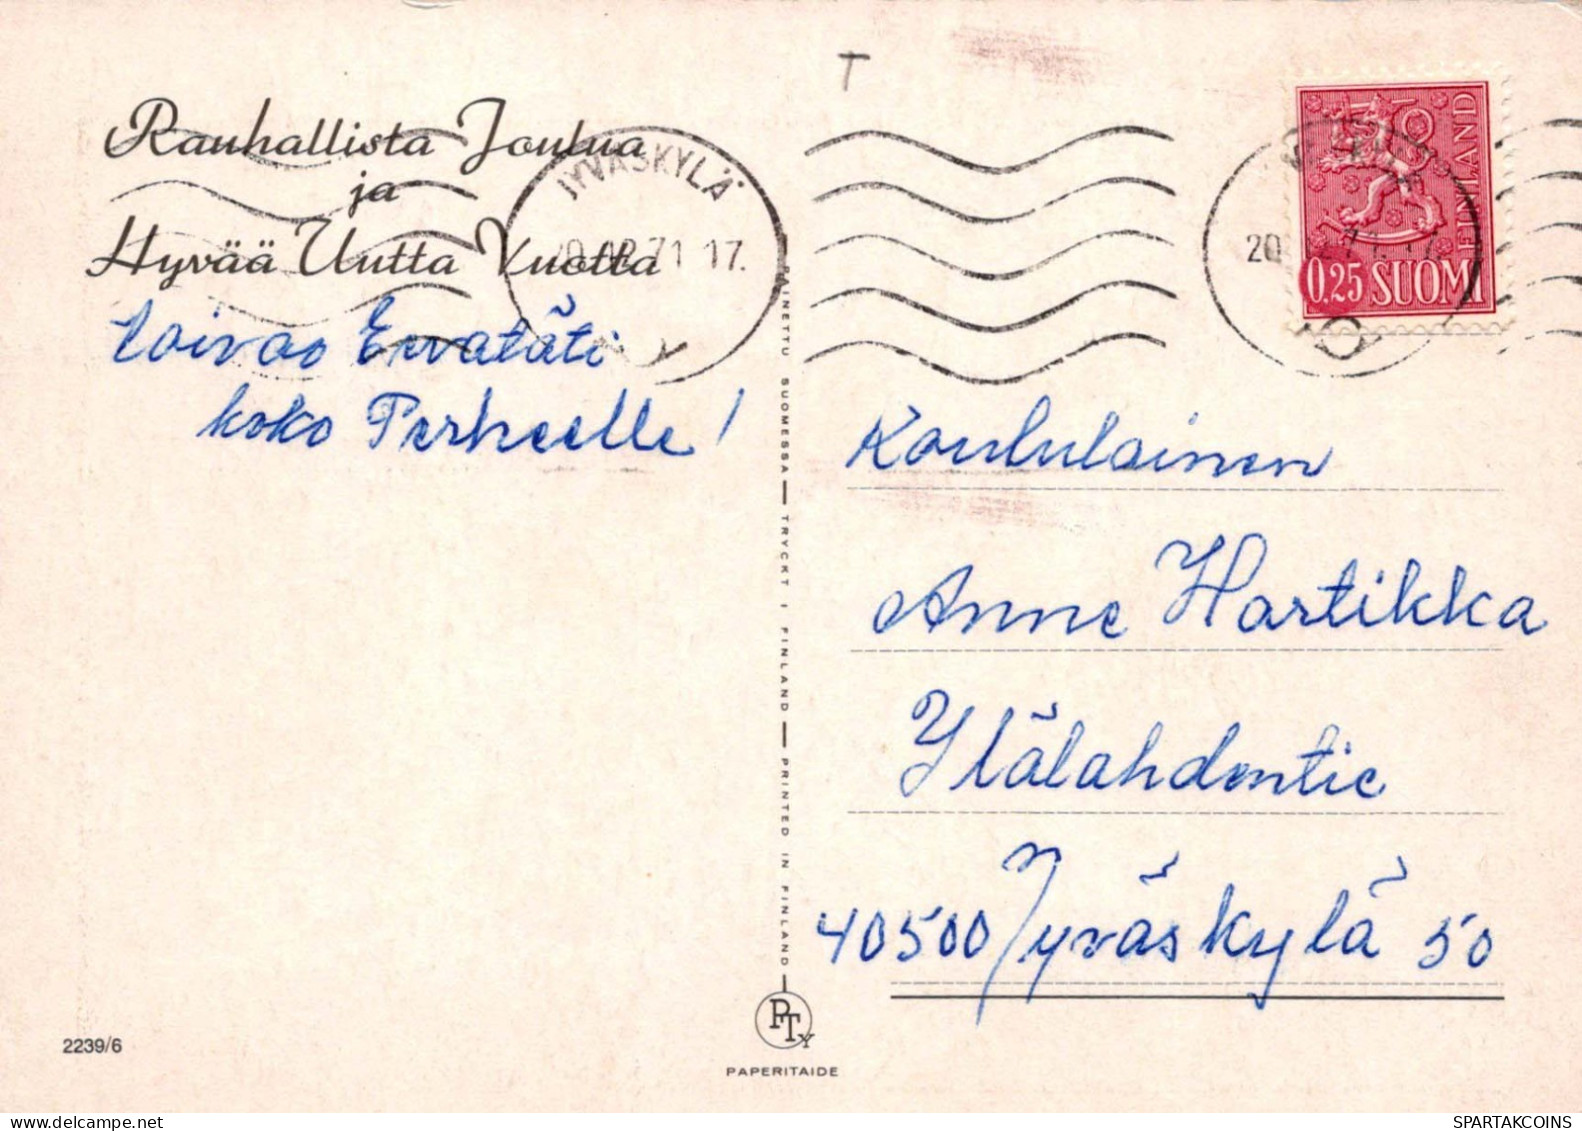 T
Rauhallista Joulua
ja
Hyvää Uutta Vuotta
toivoo Eevatäti
koko Perheelle!
JYVÄSKYLÄ
71 17.
FINLAND
0.25 SUOMI
20
Koululainen
Anne Hartikka
Ylälahdentie
40500 Jyväskylä 50
PAINETTU SUOMESSA — TRYCKT I FINLAND — PRINTED IN FINLAND
PTy
PAPERITAIDE
2239/6
SPARTAKCOINS.COM